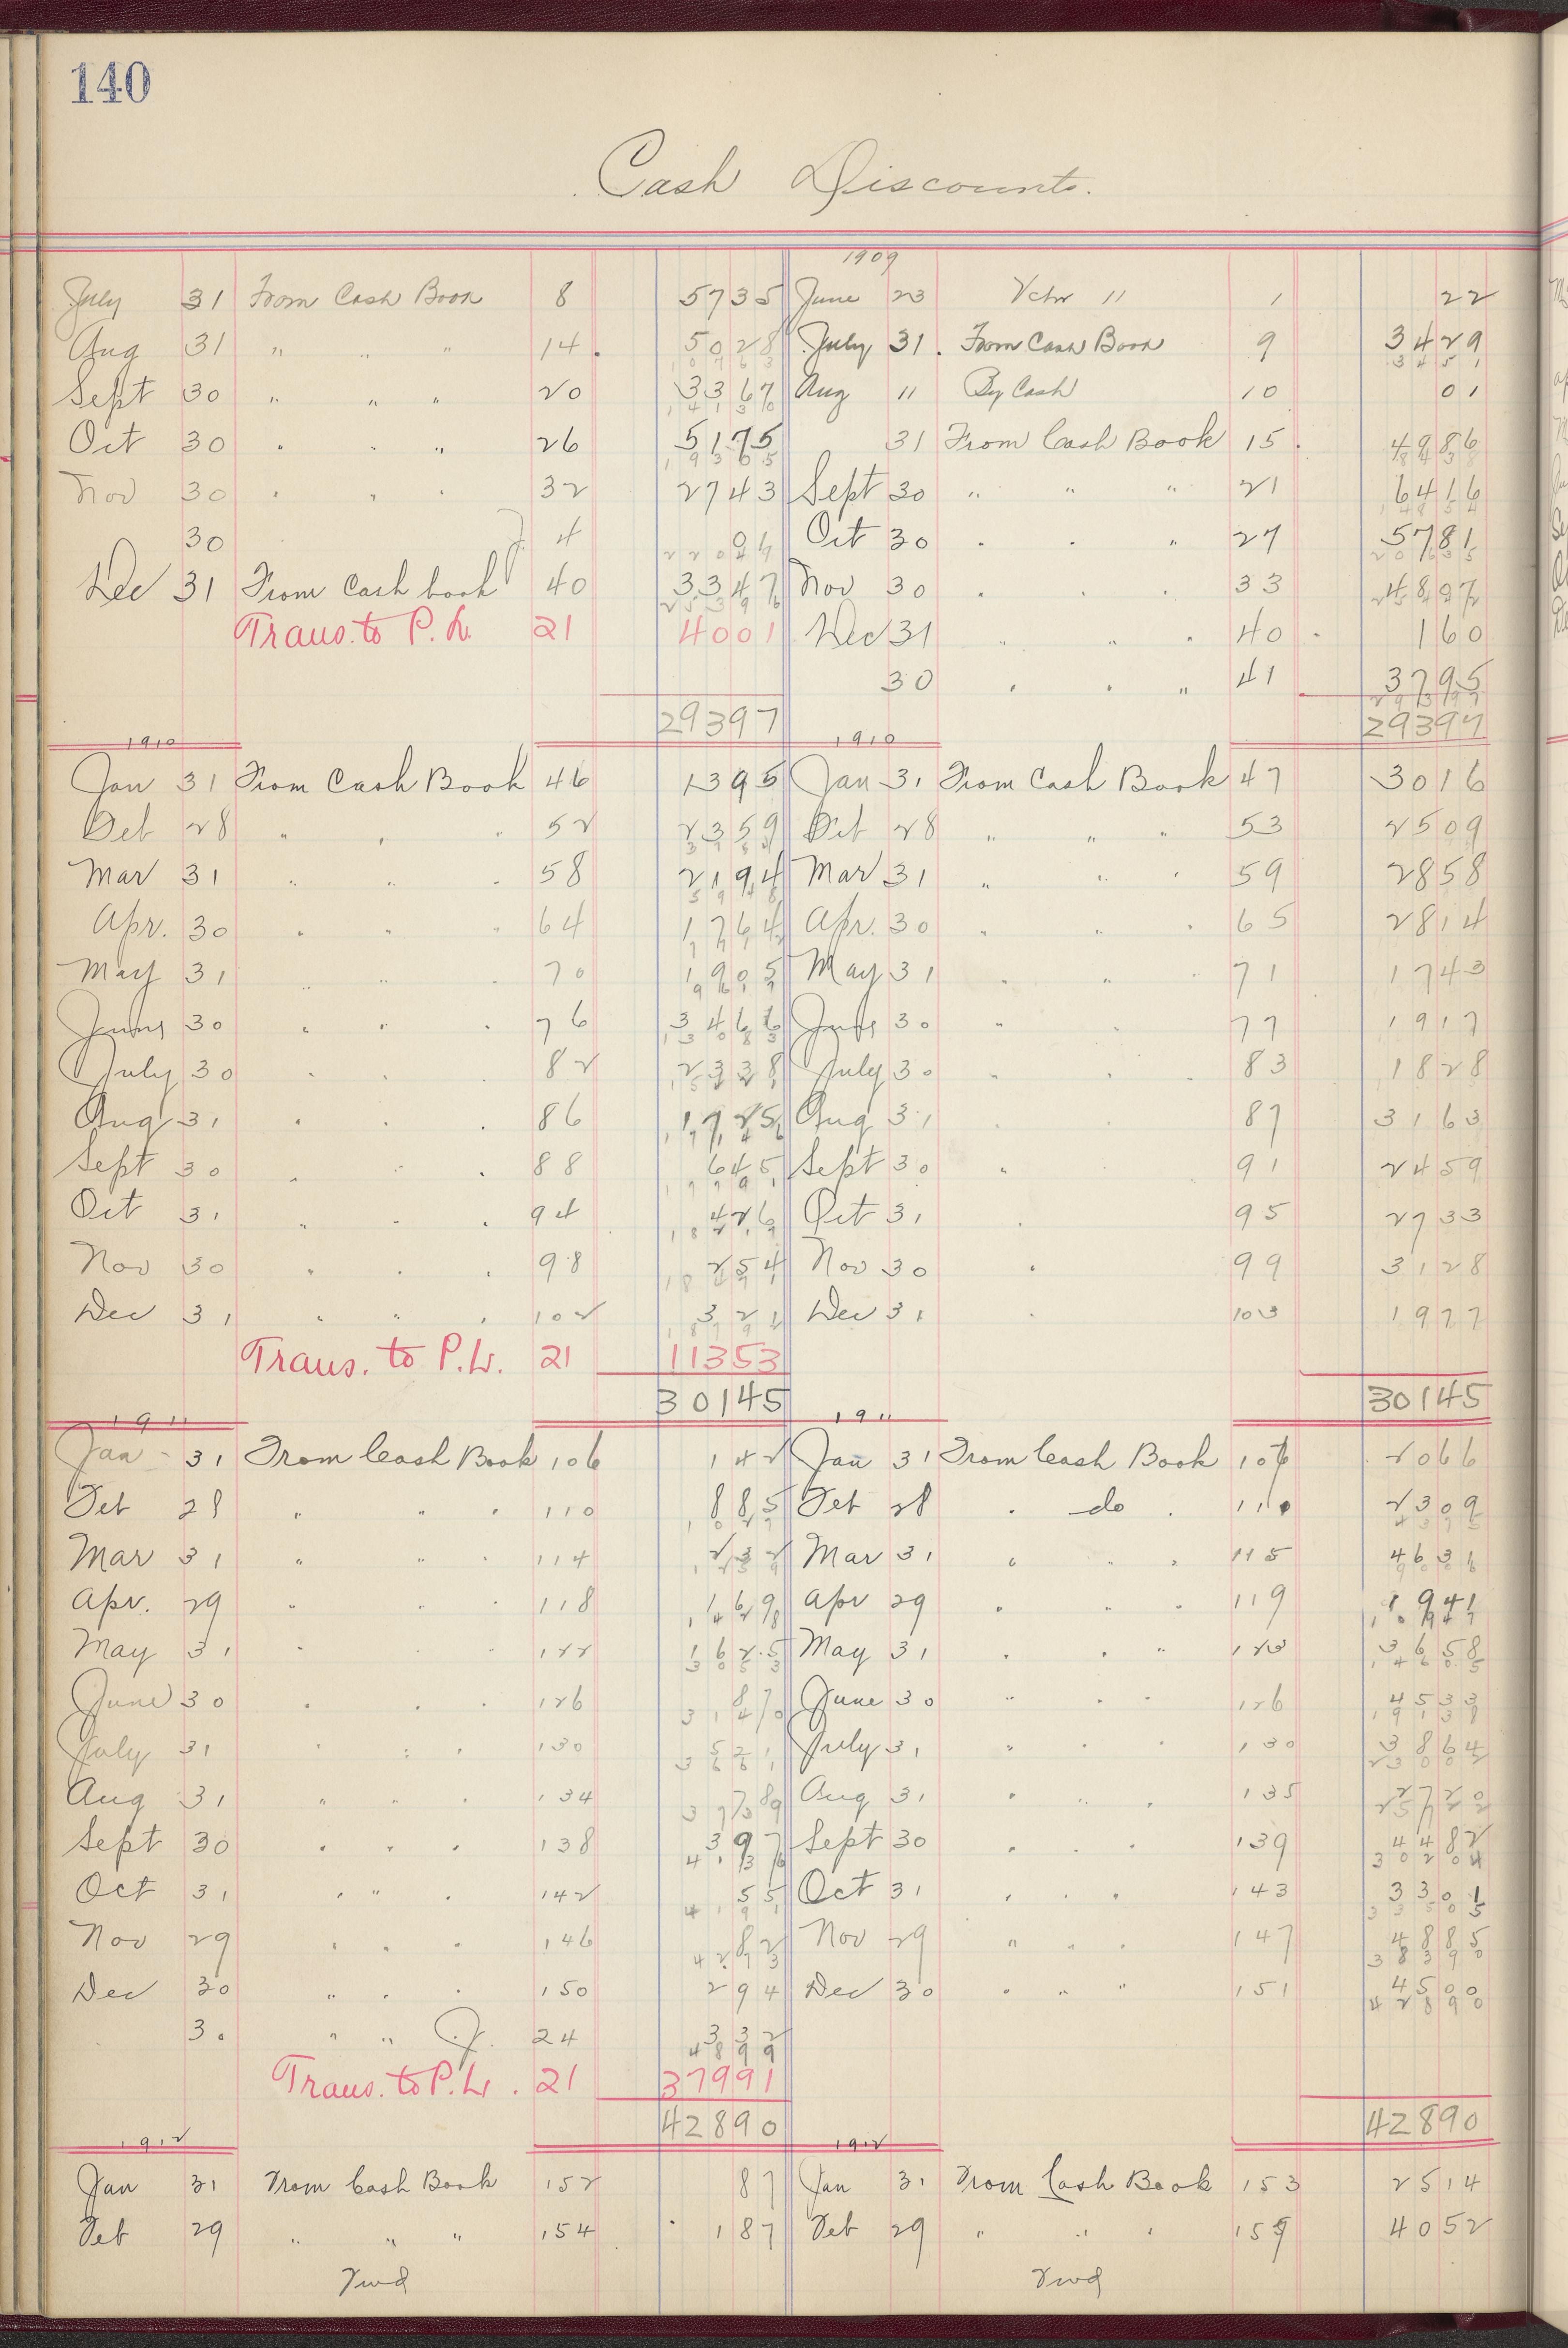 140
Cash Discounts.
1909
July 31 From Cash Book 8 5735 June 23 Vchr 11 1 22
Aug 31 " " " 14. 5028 July 31. From Cash Book 9 3429
10763 3451
Sept 30 " " " 20 3367 Aug 11 By Cash 10 01
14130
Oct 30 " " " 26 5175 31 From Cash Book 15. 4986
19305 8438
Nov 30 " " " 32 2743 Sept 30 " " " 21 6416
14854
30 J 4 01 Oct 30 " " " 27 5781
22049 20635
Dec 31 From Cash book 40 3347 Nov 30 " " " 33 4807
25396 25442
Trans. to P. L. 21 4001 Dec 31 " " " 40 160
30 " " " 41 3795
29397
29397 29397
1910 1910
Jan 31 From Cash Book 46 1395 Jan 31 From Cash Book 47 3016
Feb 28 " " " 52 2359 Feb 28 " " " 53 2509
Mar 31 " " " 58 2194 Mar 31 " " " 59 2858
5948
Apr. 30 " " " 64 1764 Apr. 30 " " " 65 2814
May 31 " " " 70 1905 May 31 " " " 71 1743
9617
June 30 " " " 76 3466 June 30 " " 77 1917
13083
July 30 " " " 82 2338 July 30 " " " 83 1828
Aug 31 " " " 86 1725 Aug 31 " " 87 3163
17146
Sept 30 " " " 88 645 Sept 30 " 91 2459
Oct 31 " " " 94 426 Oct 31 " 95 2733
Nov 30 " " " 98 254 Nov 30 " 99 3128
Dec 31 " " " 102 321 Dec 31 " 103 1977
18792
Trans. to P. L. 21 11353
30145 30145
1911 1911
Jan - 31 From Cash Book 106 142 Jan 31 From Cash Book 106 2066
Feb 28 " " " 110 885 Feb 28 " do " 110 2309
1027 4375
Mar 31 " " " 114 232 Mar 31 " " " 115 4631
1259 9006
Apr. 29 " " " 118 169 Apr 29 " " " 119 1941
1428 10947
May 31 " " " 122 1625 May 31 " " " 123 3658
3053 14605
June 30 " " " 126 87 June 30 " " " 126 4533
3140 19138
July 31 " " " 130 521 July 31 " " " 130 3864
3661 23002
Aug 31 " " " 134 78 Aug 31 " " " 135 2720
3739 25722
Sept 30 " " " 138 397 Sept 30 " " " 139 4482
4136 30204
Oct 31 " " " 142 55 Oct 31 " " " 143 3301
4191 33505
Nov 29 " " " 146 82 Nov 29 " " " 147 4885
4273 38390
Dec 30 " " " 150 294 Dec 30 " " " 151 4500
42890
30 " " J. 24 332
4899
Trans. to P. L. 21 37991
42890 42890
1912 1912
Jan 31 From Cash Book 152 87 Jan 31 From Cash Book 153 2514
Feb 29 " " " 154 187 Feb 29 " " " 155 4052
Fwd Fwd